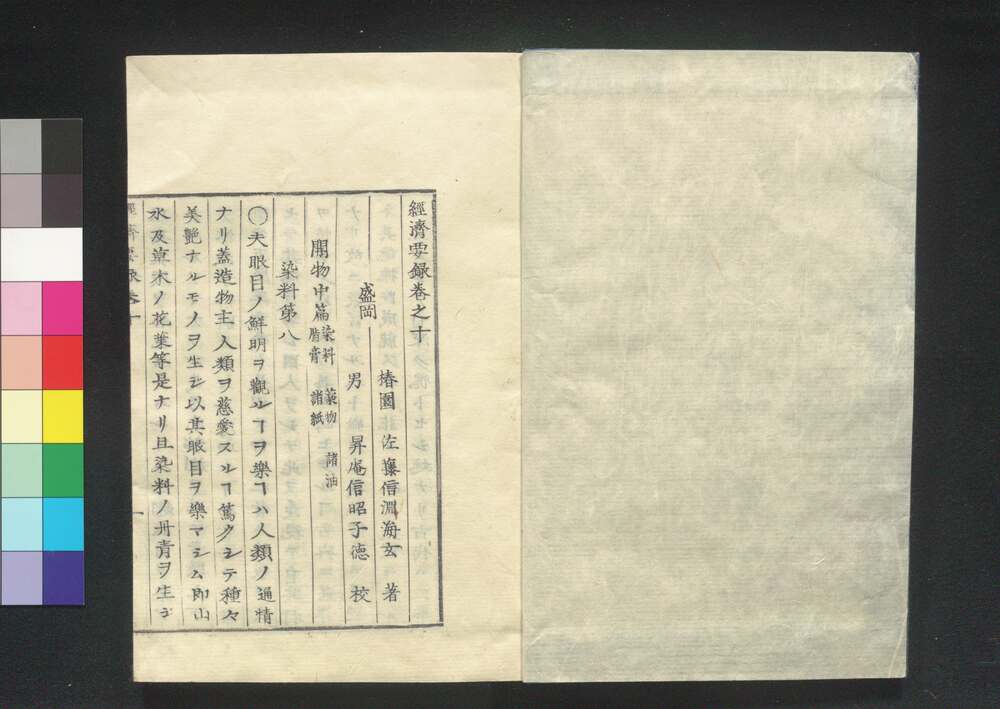 經濟要録卷之十
椿園 佐藤信淵海玄 著
盛岡
男 昇庵信昭子德 校
開物中篇 染料 藥物 諸油
脂膏 諸紙
染料第八
〇夫眼目ノ鮮明ヲ觀ルヿヲ樂ヿハ人類ノ通情
ナリ蓋造物主人類ヲ慈愛スルヿ篤クシテ種々
美艶ナルモノヲ生ジ以其眼目ヲ樂マシム即山
水及草木ノ花葉等是ナリ且染料ノ丹青ヲ生ジ
經濟要録卷十
一